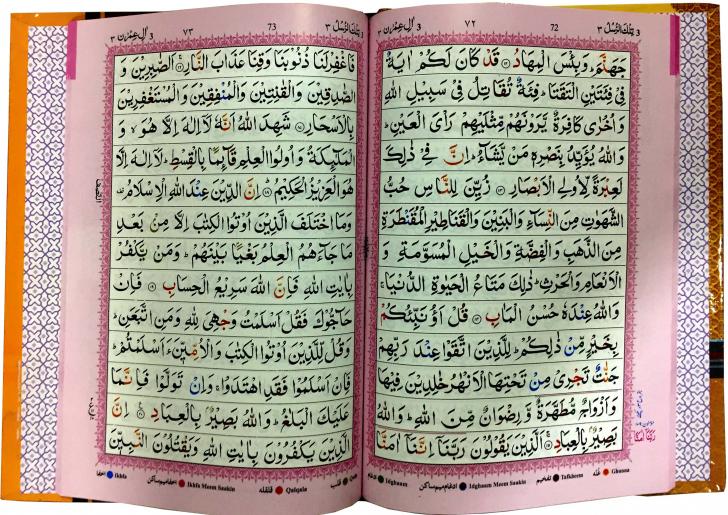 تلك الرسل ٣
72
٧٢
3 اٰل عمرٰن ٣
جَهَنَّمَ ؕ وَبِئۡسَ الۡمِهَادُ ۞ قَدۡ كَانَ لَكُمۡ اٰيَةٌ
فِىۡ فِئَتَيۡنِ الۡتَقَتَا ؕ فِئَةٌ تُقَاتِلُ فِىۡ سَبِيۡلِ اللّٰهِ
وَاُخۡرٰى كَافِرَةٌ يَّرَوۡنَهُمۡ مِّثۡلَيۡهِمۡ رَاۡىَ الۡعَيۡنِ ؕ
وَاللّٰهُ يُؤَيِّدُ بِنَصۡرِهٖ مَنۡ يَّشَآءُ ؕ اِنَّ فِىۡ ذٰلِكَ
لَعِبۡرَةً لِّاُولِى الۡاَبۡصَارِ ۞ زُيِّنَ لِلنَّاسِ حُبُّ
الشَّهَوٰتِ مِنَ النِّسَآءِ وَالۡبَنِيۡنَ وَالۡقَنَاطِيۡرِ الۡمُقَنۡطَرَةِ
مِنَ الذَّهَبِ وَالۡفِضَّةِ وَالۡخَيۡلِ الۡمُسَوَّمَةِ وَ
الۡاَنۡعَامِ وَالۡحَرۡثِ ؕ ذٰلِكَ مَتَاعُ الۡحَيٰوةِ الدُّنۡيَا ۚ
وَاللّٰهُ عِنۡدَهٗ حُسۡنُ الۡمَاٰبِ ۞ قُلۡ اَؤُنَبِّئُكُمۡ
بِخَيۡرٍ مِّنۡ ذٰلِكُمۡ ؕ لِلَّذِيۡنَ اتَّقَوۡا عِنۡدَ رَبِّهِمۡ
جَنّٰتٌ تَجۡرِىۡ مِنۡ تَحۡتِهَا الۡاَنۡهٰرُ خٰلِدِيۡنَ فِيۡهَا
وَاَزۡوَاجٌ مُّطَهَّرَةٌ وَّرِضۡوَانٌ مِّنَ اللّٰهِ ؕ وَاللّٰهُ
بَصِيۡرٌۢ بِالۡعِبَادِ ۞ اَلَّذِيۡنَ يَقُوۡلُوۡنَ رَبَّنَاۤ اِنَّنَاۤ اٰمَنَّا
رَبَّنَا اٰمَنَّا
غُنّه Ghunna
تفخیم Tafkheem
ادغام میم ساکن Idghaam Meem Saakin
ادغام Idghaam
3 تلك الرسل ٣
73
٧٣
3 اٰل عمرٰن ٣
فَاغۡفِرۡ لَنَا ذُنُوۡبَنَا وَقِنَا عَذَابَ النَّارِ ۞ اَلصّٰبِرِيۡنَ وَ
الصّٰدِقِيۡنَ وَالۡقٰنِتِيۡنَ وَالۡمُنۡفِقِيۡنَ وَالۡمُسۡتَغۡفِرِيۡنَ
بِالۡاَسۡحَارِ ۞ شَهِدَ اللّٰهُ اَنَّهٗ لَاۤ اِلٰهَ اِلَّا هُوَ ۙ وَ
الۡمَلٰٓئِكَةُ وَاُولُوا الۡعِلۡمِ قَآئِمًۢا بِالۡقِسۡطِ ؕ لَاۤ اِلٰهَ اِلَّا
هُوَ الۡعَزِيۡزُ الۡحَكِيۡمُ ۞ اِنَّ الدِّيۡنَ عِنۡدَ اللّٰهِ الۡاِسۡلَامُ
وَمَا اخۡتَلَفَ الَّذِيۡنَ اُوۡتُوا الۡكِتٰبَ اِلَّا مِنۡۢ بَعۡدِ
مَا جَآءَهُمُ الۡعِلۡمُ بَغۡيًۢا بَيۡنَهُمۡ ؕ وَمَنۡ يَّكۡفُرۡ
بِاٰيٰتِ اللّٰهِ فَاِنَّ اللّٰهَ سَرِيۡعُ الۡحِسَابِ ۞ فَاِنۡ
حَآجُّوۡكَ فَقُلۡ اَسۡلَمۡتُ وَجۡهِىَ لِلّٰهِ وَمَنِ اتَّبَعَنِ ؕ
وَقُلۡ لِّلَّذِيۡنَ اُوۡتُوا الۡكِتٰبَ وَالۡاُمِّيّٖنَ ءَاَسۡلَمۡتُمۡ ؕ
فَاِنۡ اَسۡلَمُوۡا فَقَدِ اهۡتَدَوۡا ۚ وَاِنۡ تَوَلَّوۡا فَاِنَّمَا
عَلَيۡكَ الۡبَلٰغُ ؕ وَاللّٰهُ بَصِيۡرٌۢ بِالۡعِبَادِ ۞ اِنَّ
الَّذِيۡنَ يَكۡفُرُوۡنَ بِاٰيٰتِ اللّٰهِ وَيَقۡتُلُوۡنَ النَّبِيّٖنَ
قلب
قلقلہ Qalqala
اخفا میم ساکن Ikhfa Meem Saakin
اخفا Ikhfa